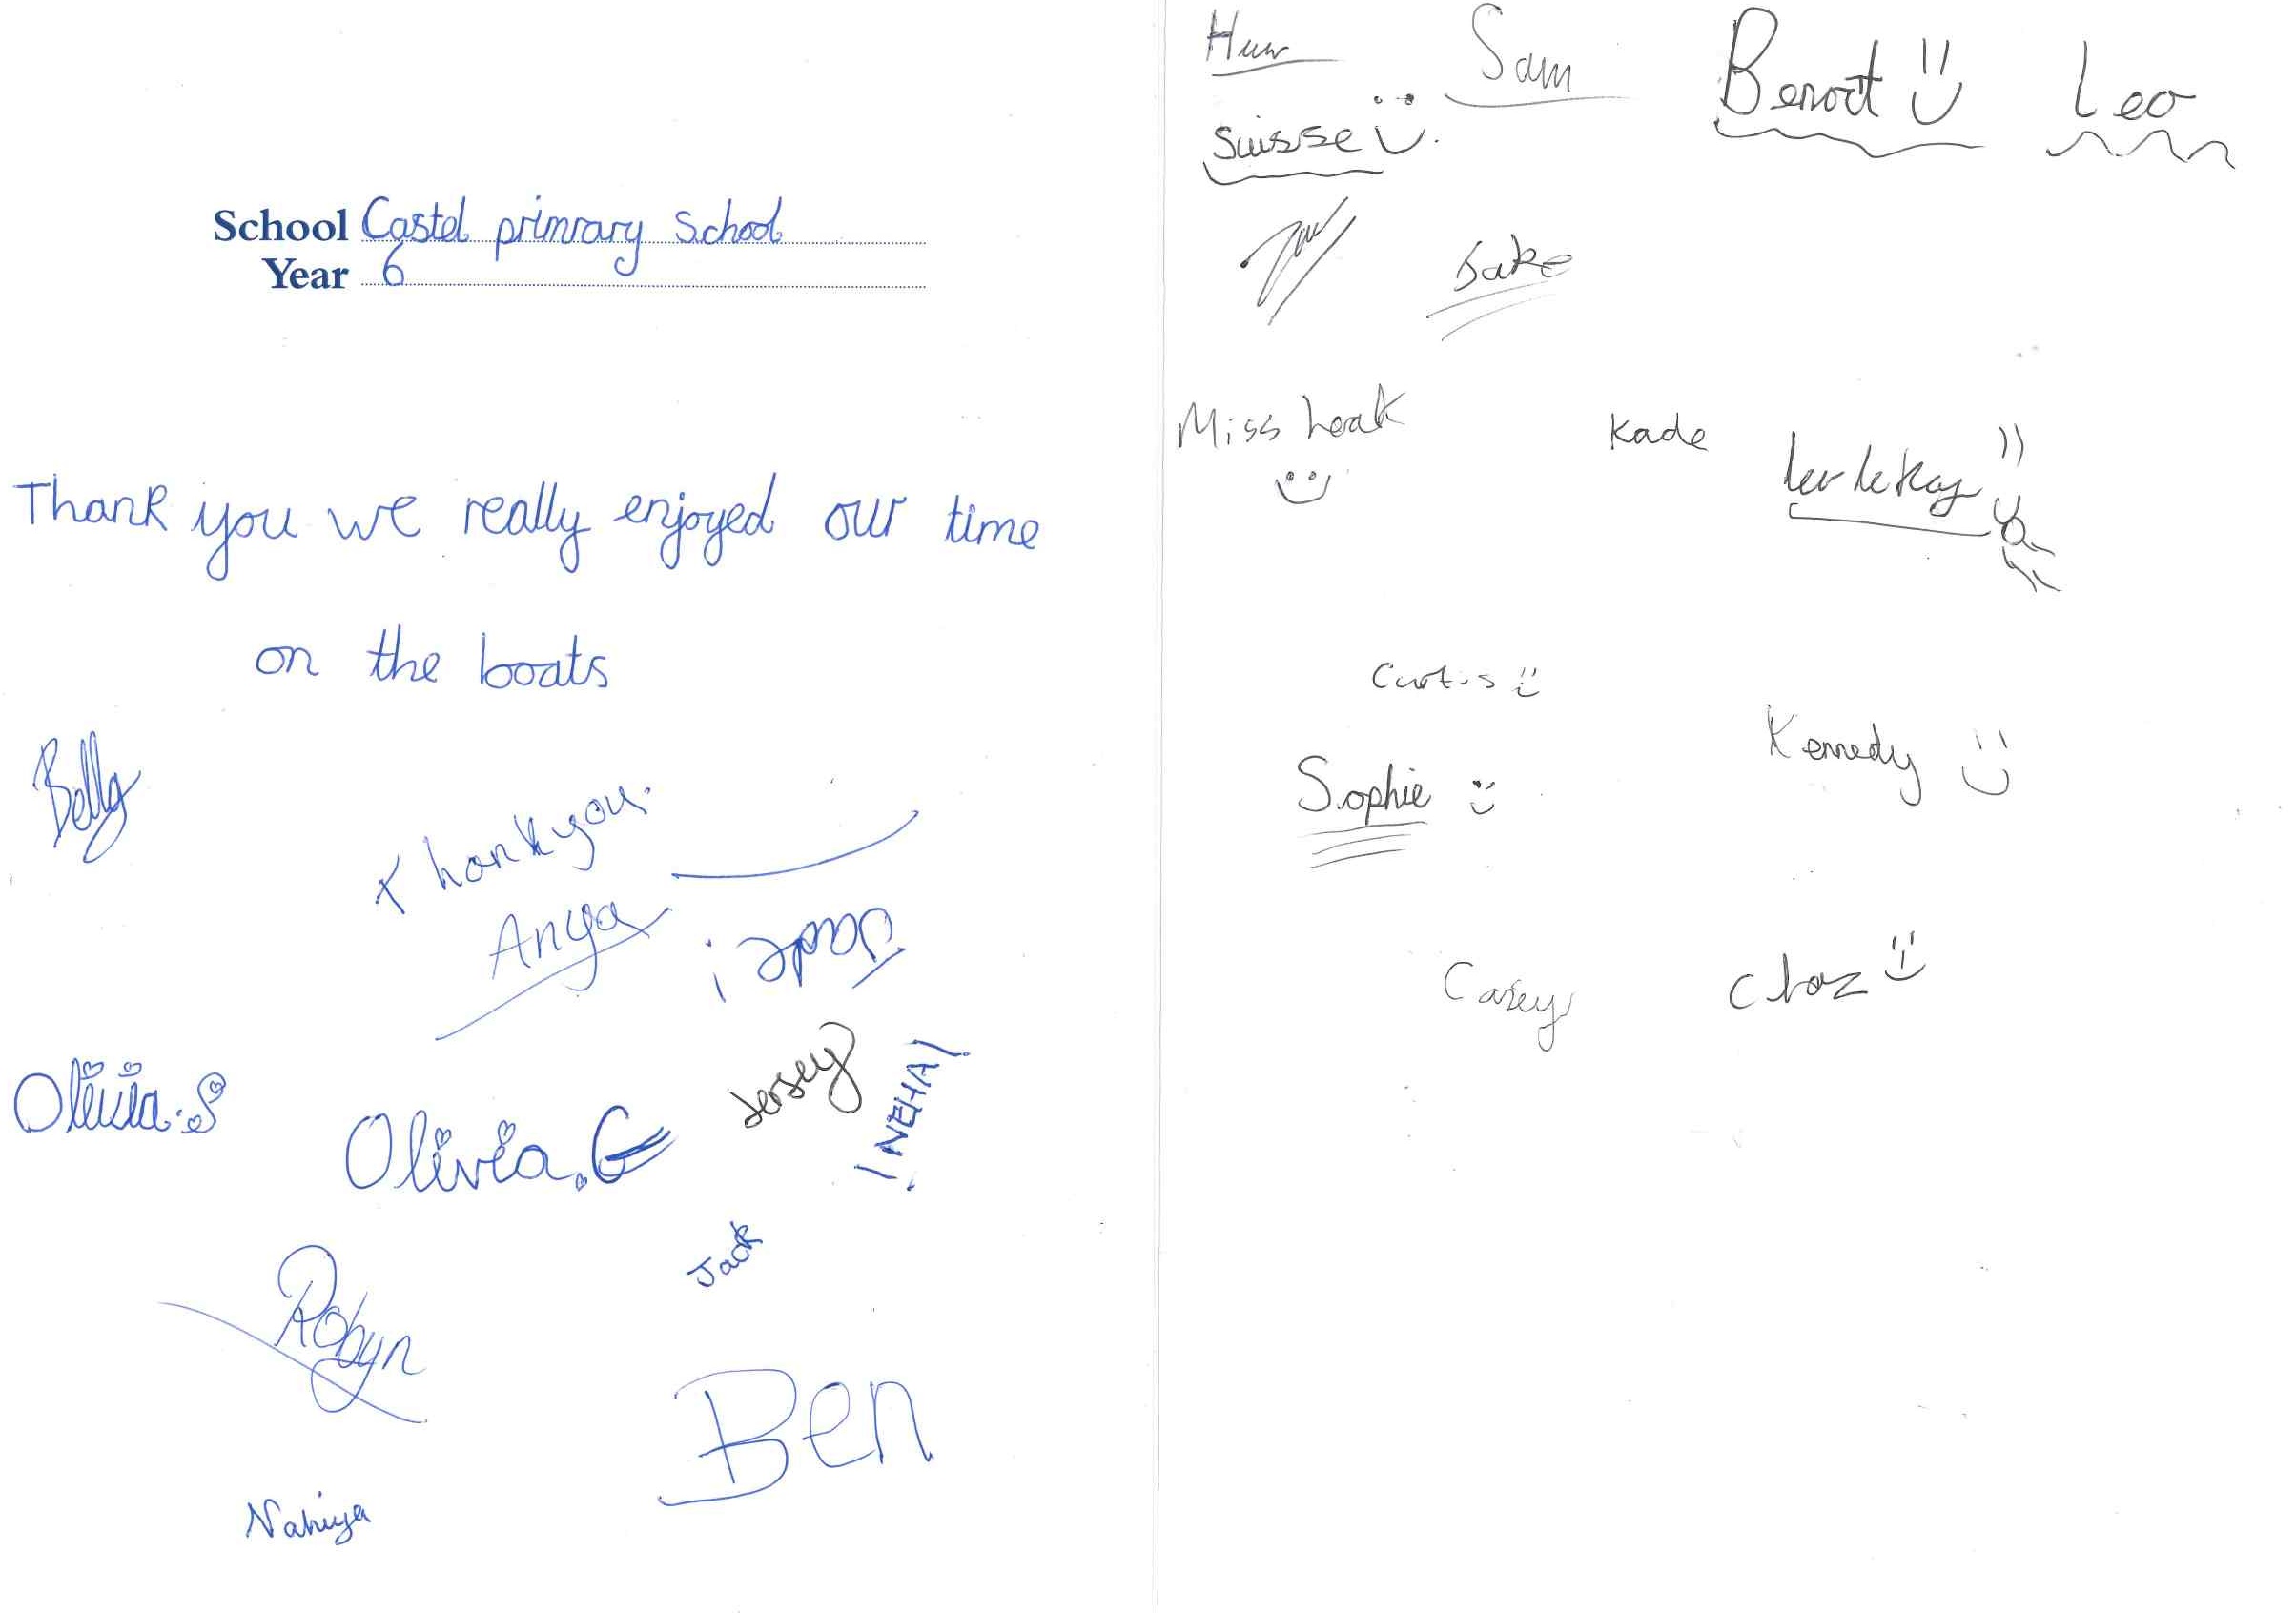 School Castel primrary School
Year 6
Thank you we really enjoyed our time
on the boats
Bella
Thankyou.
Anya
Jade!
Olivia.S
Olivia.G
Jersey
!NEHA!
Jack
Robyn
Ben
Nahiya
Huw
Sam
Benoit
Leo
Suisse
Jake
Miss
Kade
Curtis
Kennedy
Sophie
Casey
Chaz